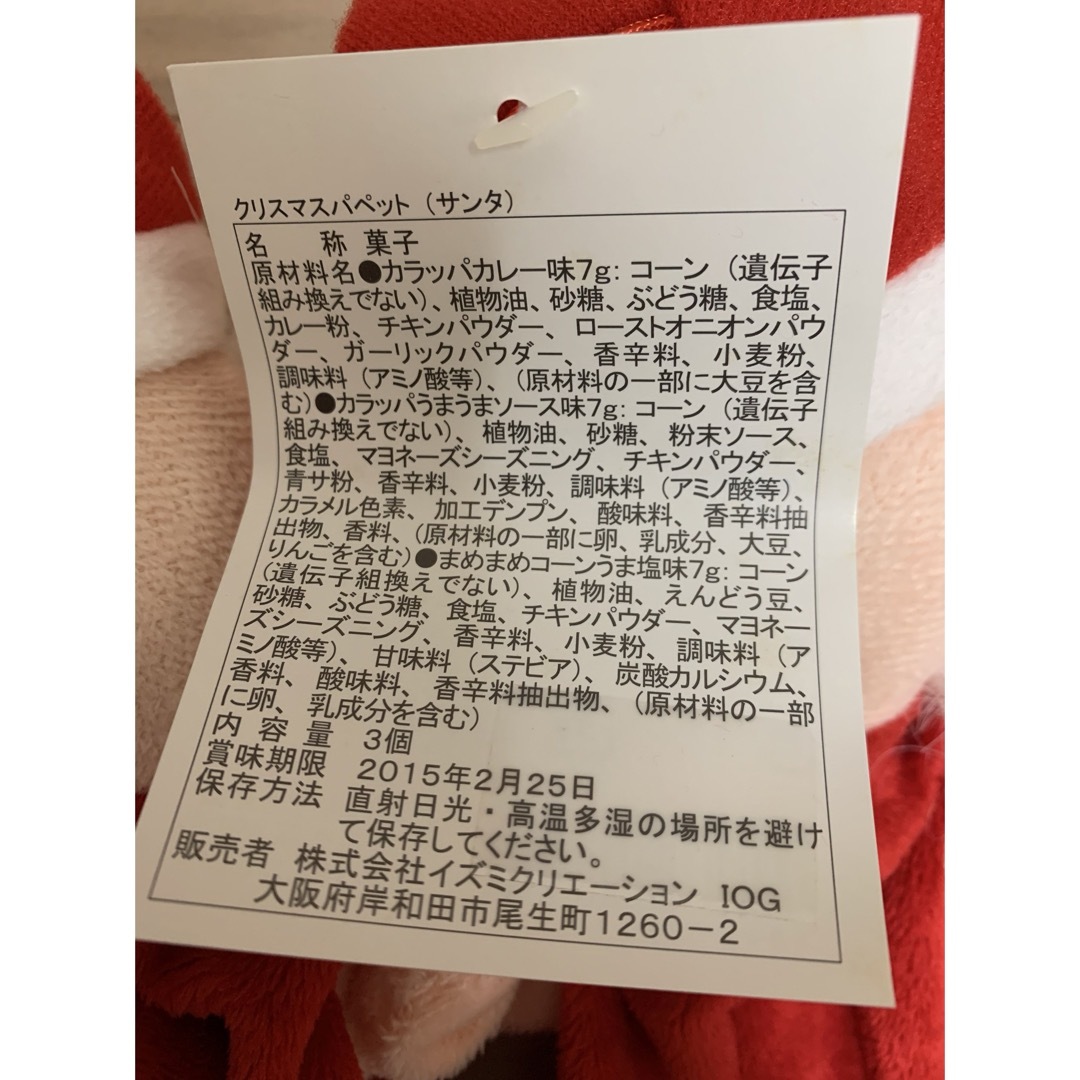 クリスマスパペット（サンタ）
名　　称 菓子
原材料名●カラッパカレー味7g: コーン（遺伝子
組み換えでない）、植物油、砂糖、ぶどう糖、食塩、
カレー粉、チキンパウダー、ローストオニオンパウ
ダー、ガーリックパウダー、香辛料、小麦粉、
調味料（アミノ酸等）、（原材料の一部に大豆を含
む）●カラッパうまうまソース味7g: コーン（遺伝子
組み換えでない）、植物油、砂糖、粉末ソース、
食塩、マヨネーズシーズニング、チキンパウダー、
青サ粉、香辛料、小麦粉、調味料（アミノ酸等）、
カラメル色素、加工デンプン、酸味料、香辛料抽
出物、香料、（原材料の一部に卵、乳成分、大豆、
りんごを含む）●まめまめコーンうま塩味7g: コーン
（遺伝子組換えでない）、植物油、えんどう豆、
砂糖、ぶどう糖、食塩、チキンパウダー、マヨネー
ズシーズニング、香辛料、小麦粉、調味料（ア
ミノ酸等）、甘味料（ステビア）、炭酸カルシウム、
香料、酸味料、香辛料抽出物、（原材料の一部
に卵、乳成分を含む）
内 容 量　3個
賞味期限　2015年2月25日
保存方法　直射日光・高温多湿の場所を避け
て保存してください。
販売者　株式会社イズミクリエーション IOG
大阪府岸和田市尾生町1260－2